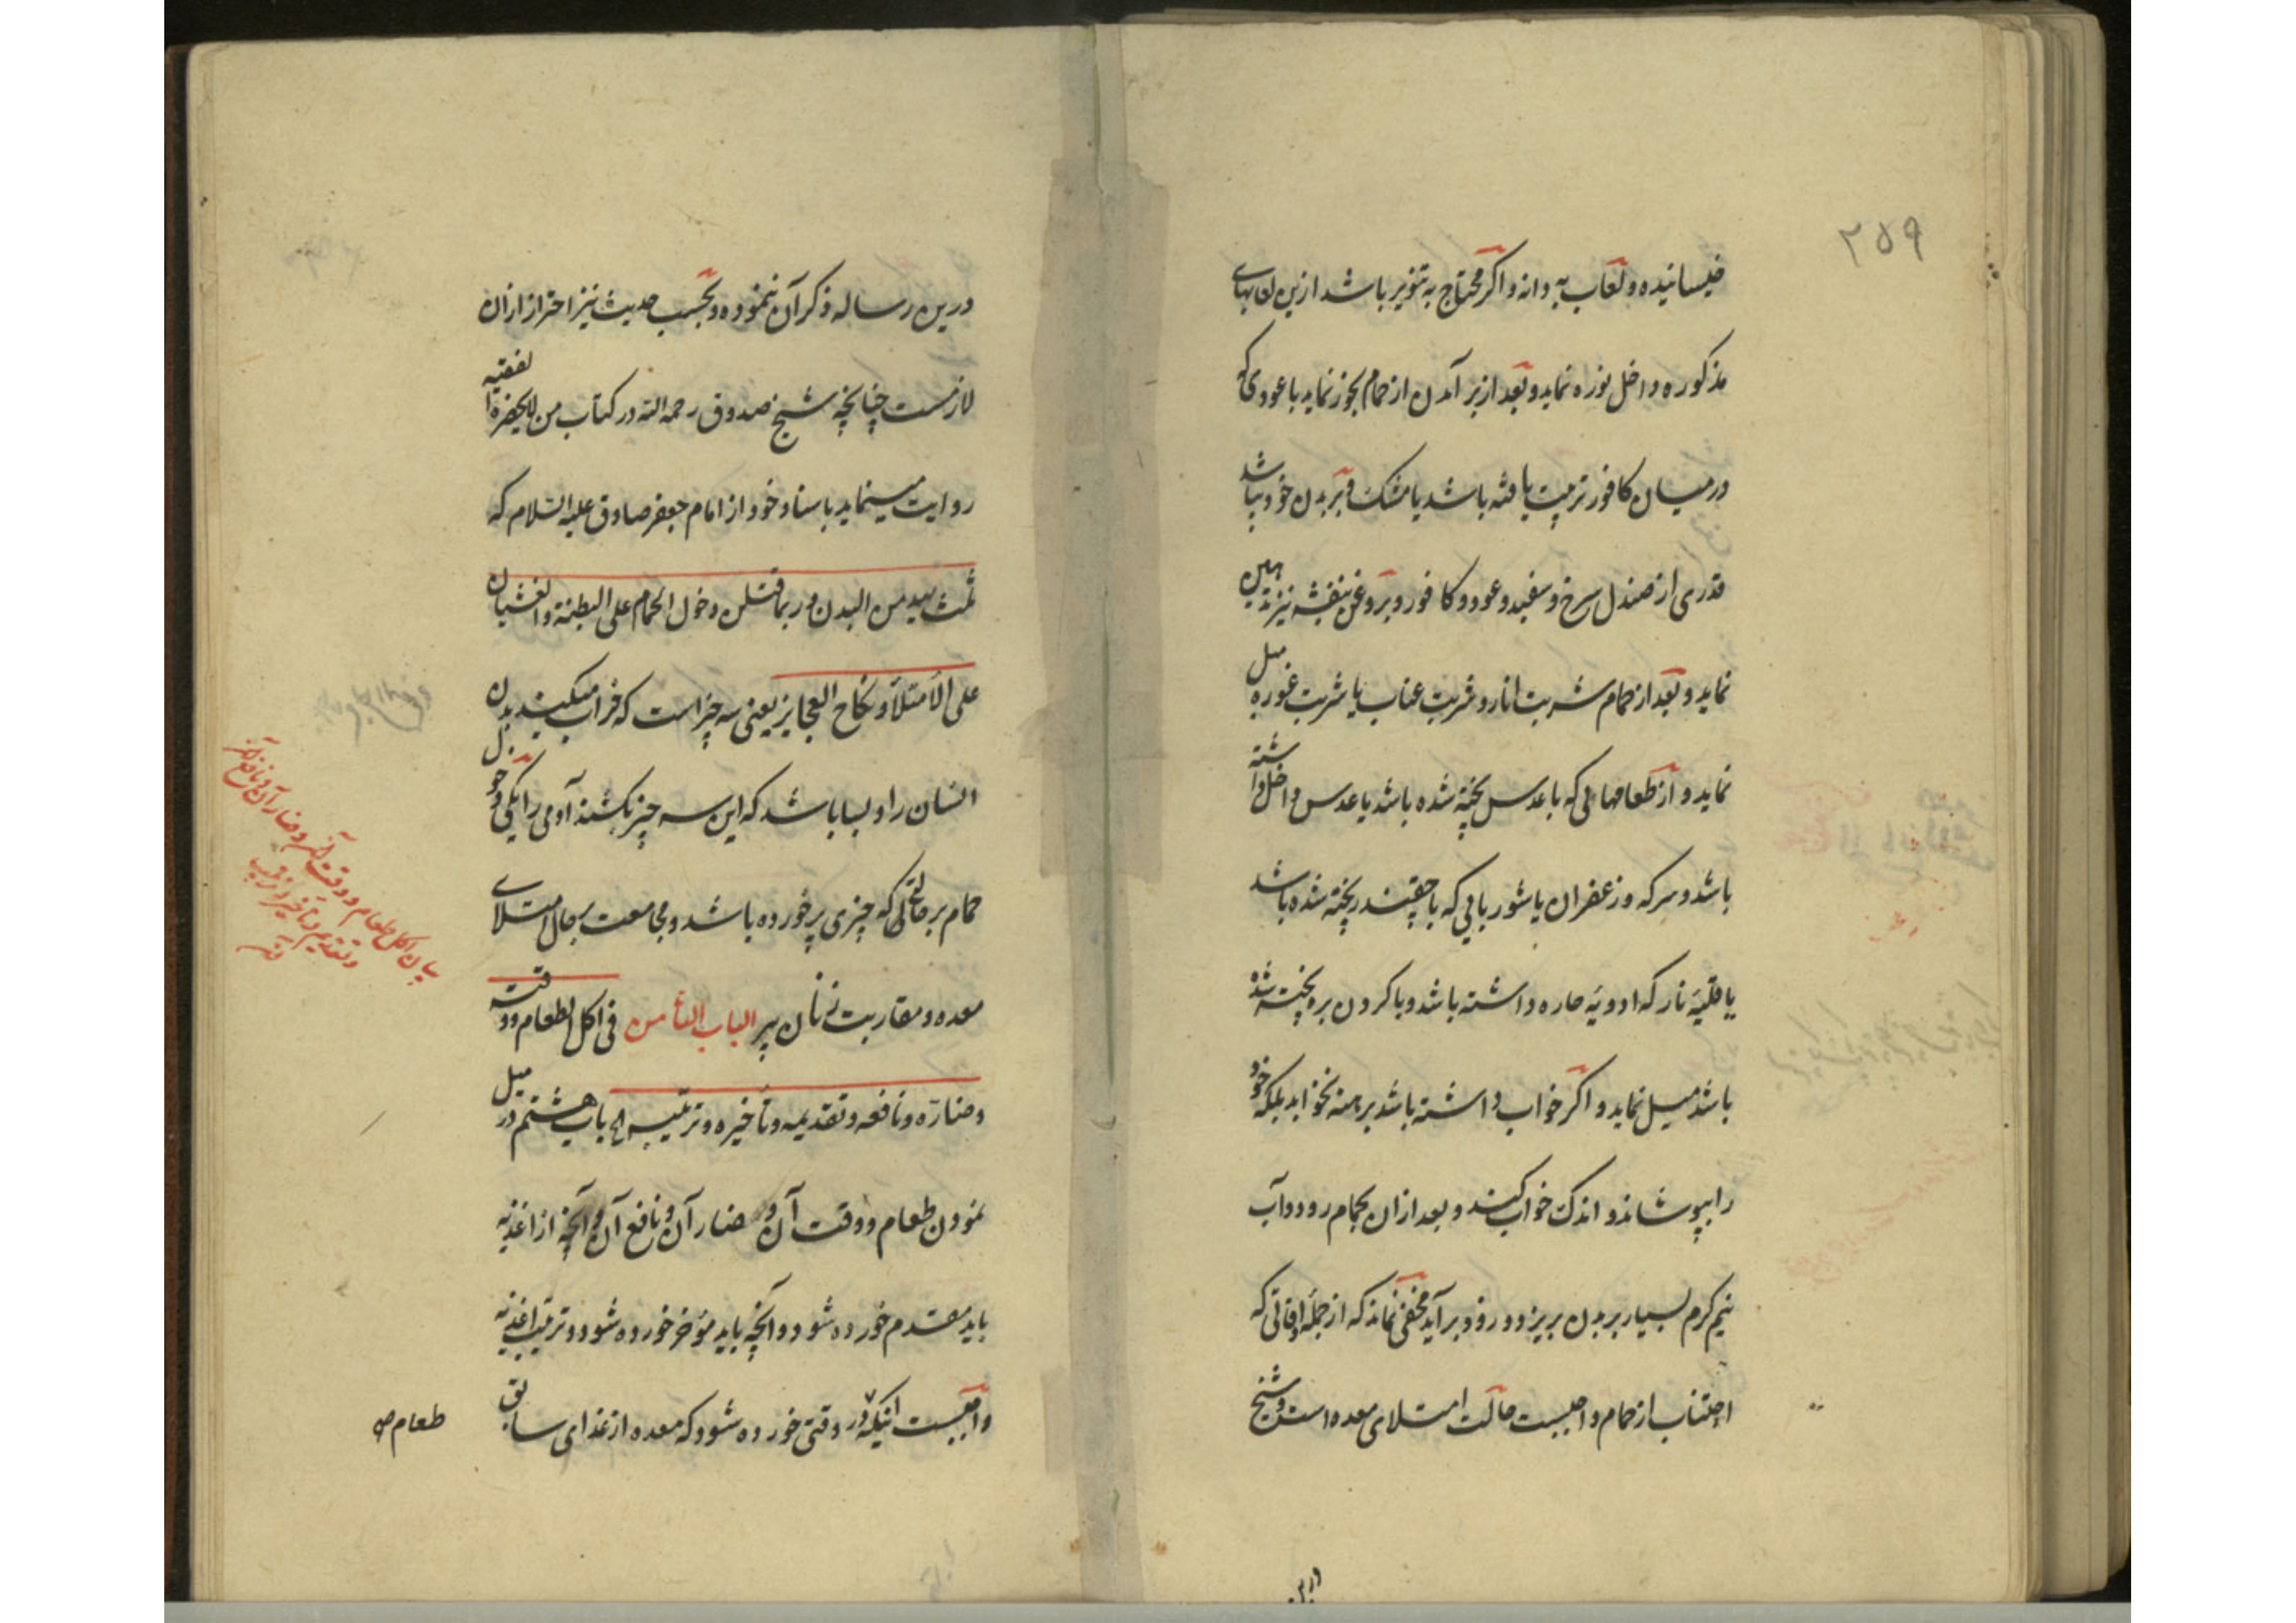 ۲۵۹
خیسانیده و لعاب به دانه و اکر محتاج به تنویر باشد ازین لعابهای
مذکوره داخل نوره نماید و بعد از بر آمدن از حمام بخور نماید با عودی که
در میان کافور تربیت یافته باشد یا مشک و بر بدن خود بپاشد
قدری از صندل سرخ و سفید و عود و کافور و بروغن بنفشه نیز تدهین
نماید و بعد از حمام شربت انار و شربت عناب یا شربت غوره میل
نماید و از طعامهائی که با عدس پخته شده باشد یا عدس داخل داشته
باشد و سرکه و زعفران یا شوربایی که با چقندر پخته شده باشد
یا قلیۀ نار که ادویۀ حاره داشته باشد و با کردن بره پخته شده
باشد میل نماید و اکر خواب داشته باشد برهنه نخوابد بلکه خود
را بپوشاند و اندک خواب کند و بعد ازان بحمام رود و آب
نیم کرم بسیار بر بدن بریزد و زود بر آید مخفی نماند که از جملۀ اوقاتی که
اجتناب از حمام واجبست حالت امتلای معده است و شیخ
درین رساله ذکر آن ننموده و بحسب حدیث نیز احتراز ازان
لازمست چنانچه شیخ صدوق رحمه الله در کتاب من لایحضره الفقیه
روایت مینماید باسناد خود از امام جعفر صادق علیه السلام که
ثلث یهدمن البدن و ربما قتلن دخول الحمام علی البطنة و الغشیان
علی الامتلاء و نکاح العجایز یعنی سه چیز است که خراب میکنند بدن
انسان را و بسا باشد که این سه چیز بکشند آدمی را یکی دخول
حمام بر حالتی که چیزی پر خورده باشد و مجامعت بر حال امتلای
معده و مقاربت زنان پیر الباب الثامن فی اکل الطعام و وقته
و ضارّه و نافعه و تقدیمه و تأخیره و ترتیبه باب هشتم در میل
نمودن طعام و وقت آن و ضار آن و نافع آن و آنچه از اغذیه
باید مقدم خورده شود و آنچه باید مؤخر خورده شود و ترتیب اغذیه
واجبست اینکه در وقتی خورده شود که معده از غذای سابق
طعام
بیان اکل طعام و وقت آن و ضار آن و نافع آن
و تقدیم و تأخیر و ترتیب